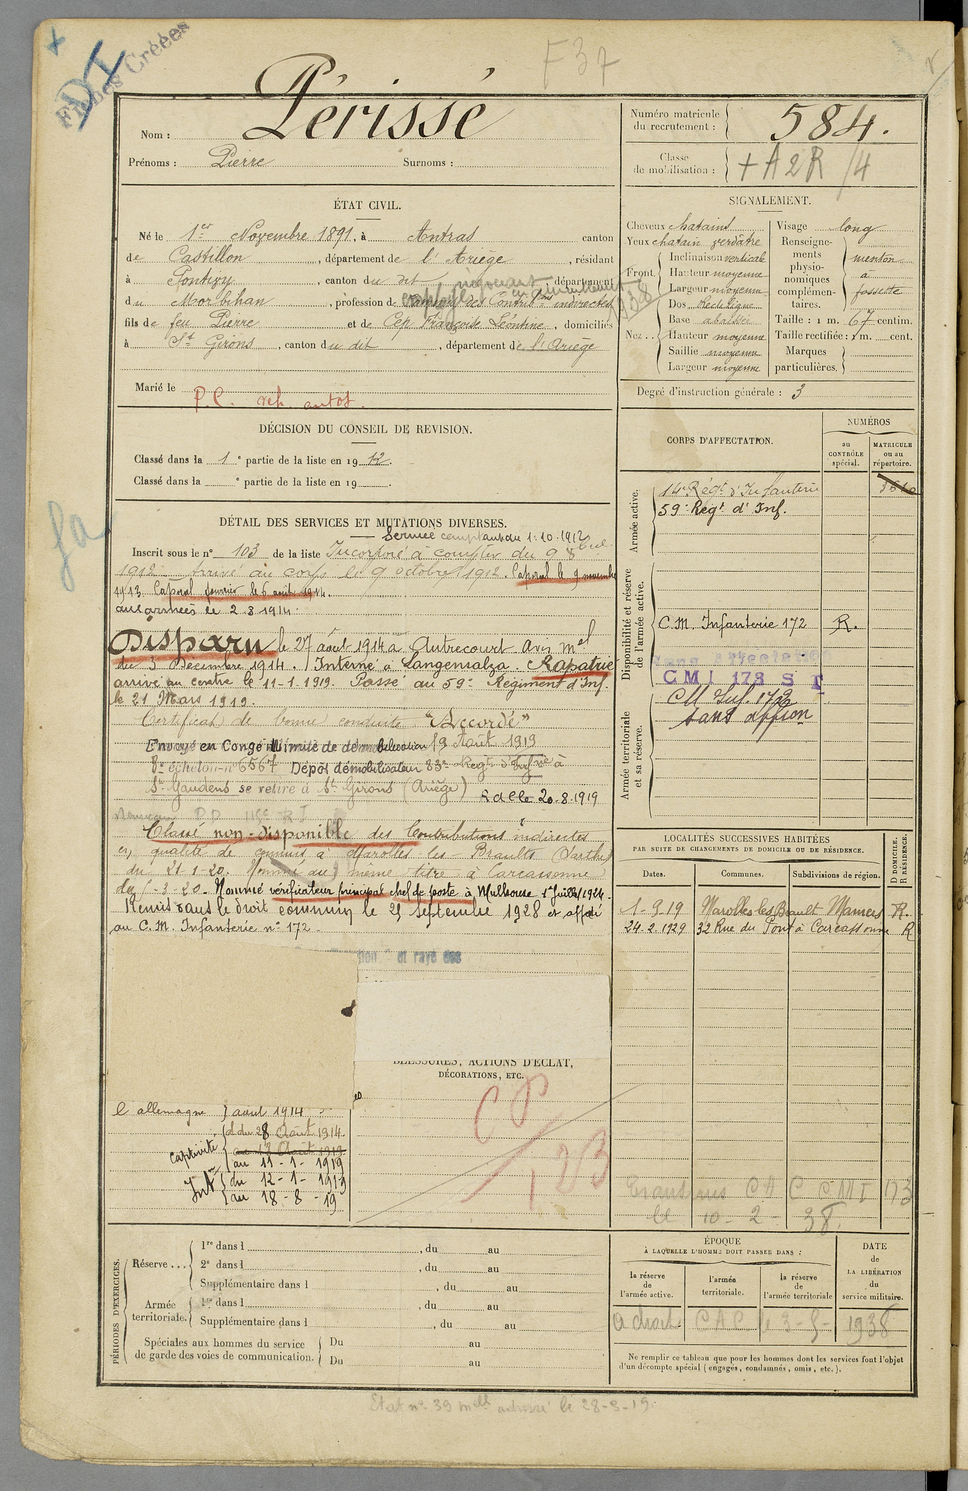 Fiches Créées
F37
Nom : Périssé
Prénoms : Pierre Surnoms :
Numéro matricule du recrutement : 584.
Classe de mobilisation : + A 2 R /4
ÉTAT CIVIL.
Né le 1er Novembre 1891, à Antras canton
de Castillon, département de l'Ariège, résidant
à Pontivy, canton du dit, département
du Morbihan, profession de des Contribons indirectes
fils de feu Pierre et de Cep Françoise Léontine, domiciliés
à St Girons, canton du dit, département de l'Ariège
Marié le
P.C.
SIGNALEMENT.
Cheveux chatains
Yeux chatain verdâtre
Front. Inclinaison verticale
Hauteur moyenne
Largeur moyenne
Nez.. Dos rectiligne
Base abaissée
Hauteur moyenne
Saillie moyenne
Largeur moyenne
Visage long
Renseignements physionomiques complémentaires. menton à fossette
Taille : 1 m. 67 centim.
Taille rectifiée : 1 m. cent.
Marques particulières.
Degré d'instruction générale : 3
DÉCISION DU CONSEIL DE REVISION.
Classé dans la 1e partie de la liste en 1912.
Classé dans la e partie de la liste en 19 .
CORPS D'AFFECTATION.
NUMÉROS
au CONTRÔLE spécial.
MATRICULE ou au répertoire.
Armée active.
14e Régt d'Infanterie
59e Régt d'Inf.
Disponibilité et réserve de l'armée active.
C.M. Infanterie 172 R.
Sans affectation
CMI 173 S T
Armée territoriale et sa réserve.
CM Inf. 173
sans affion
DÉTAIL DES SERVICES ET MUTATIONS DIVERSES.
Service comptant du 1-10-1912
Inscrit sous le n° 103 de la liste Incorporé à compter du 9 8bre
1912 Arrivé au corps le 9 octobre 1912. Caporal le 9 novembre
1913. Caporal fourrier le 6 août 1914.
aux armées le 2.8.1914.
Disparu le 27 août 1914 à Autrecourt Avis mel
du 3 Décembre 1914. Interné à Langensalza. Rapatrié
arrivé au centre le 11-1-1919. Passé au 59e Régiment d'Inf.
le 21 Mars 1919.
Certificat de bonne conduite "Accordé"
Envoyé en Congé illimité de démobilisation 19 Août 1919
8e échelon n° 6567 Dépôt démobilisateur 83e Régt d'Infie à
St Gaudens se retire à St Girons (Ariège) 20.8.1919
Classé non-disponible des Contributions indirectes
en qualité de commis à Marolles-les-Braults Sarthe
du 21-1-20. Nommé au même titre à Carcassonne
-3-20. Nommé vérificateur principal chef de poste à Mulhouse 1er Juillet 1924.
Remis dans le droit commun le 21 Septembre 1928 et affté
au C.M. Infanterie n° 172.
tion et rayé des
LOCALITÉS SUCCESSIVES HABITÉES
PAR SUITE DE CHANGEMENTS DE DOMICILE OU DE RÉSIDENCE.
Dates. Communes. Subdivisions de région. D DOMICILE. R RÉSIDENCE.
1-9-19 Marolles les Brault Mamers R.
24.2.1929 32 Rue du Pont à Carcassonne R
BLESSURES, ACTIONS D'ÉCLAT,
DÉCORATIONS, ETC.
CP
123
allemagne août 1914
Captivité du 28 Août 1914
au 11-1-1919
Intr du 12-1-1919
au 18-8-19
CMI 173
le 10-2-38.
PÉRIODES D'EXERCICES.
Réserve... 1re dans l , du au
2e dans l , du au
Supplémentaire dans l , du au
Armée territoriale. 1re dans l , du au
Supplémentaire dans l , du au
Spéciales aux hommes du service de garde des voies de communication. Du au
Du au
ÉPOQUE
À LAQUELLE L'HOMME DOIT PASSER DANS :
la réserve de l'armée active.
l'armée territoriale.
la réserve de l'armée territoriale
DATE de LA LIBÉRATION du service militaire.
1938
Ne remplir ce tableau que pour les hommes dont les services font l'objet
d'un décompte spécial (engagés, condamnés, omis, etc.).
Etat n° 39 mell adressé le 28-8-19.